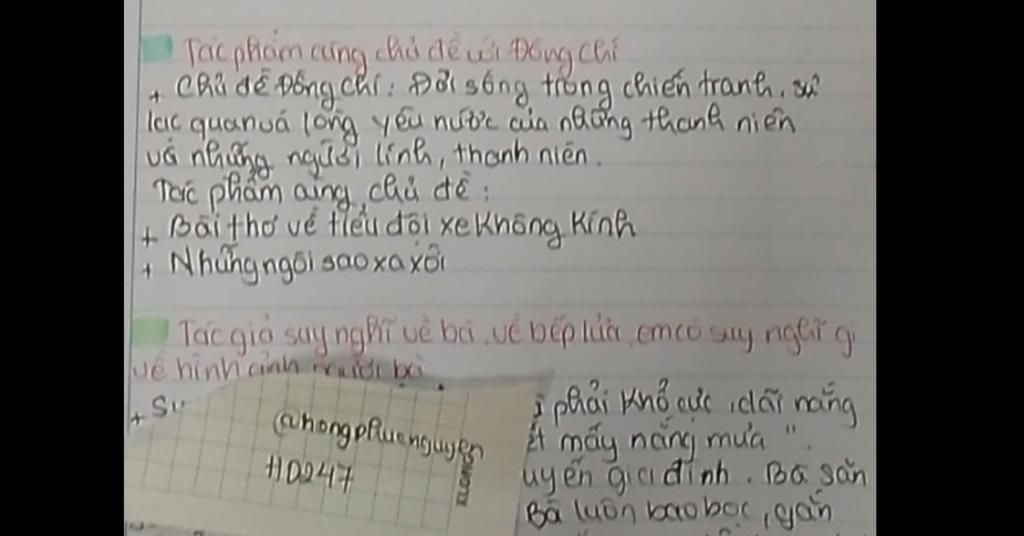 Tác phẩm cùng chủ đề với Đồng chí
+ Chủ đề Đồng chí: Đời sống trong chiến tranh, sự
lạc quan và lòng yêu nước của những thanh niên
và những người lính, thanh niên.
Tác phẩm cùng chủ đề:
+ Bài thơ về tiểu đội xe không kính
+ Những ngôi sao xa xôi
Tác giả suy nghĩ về bà, về bếp lửa, em có suy nghĩ gì
về hình ảnh người bà
+ phải khổ cực, dãi nắng
mấy nắng mưa".
@hongphucnguyen
110247
KLONG
gia đình. Bà sẵn
Bà luôn bao bọc, gắn